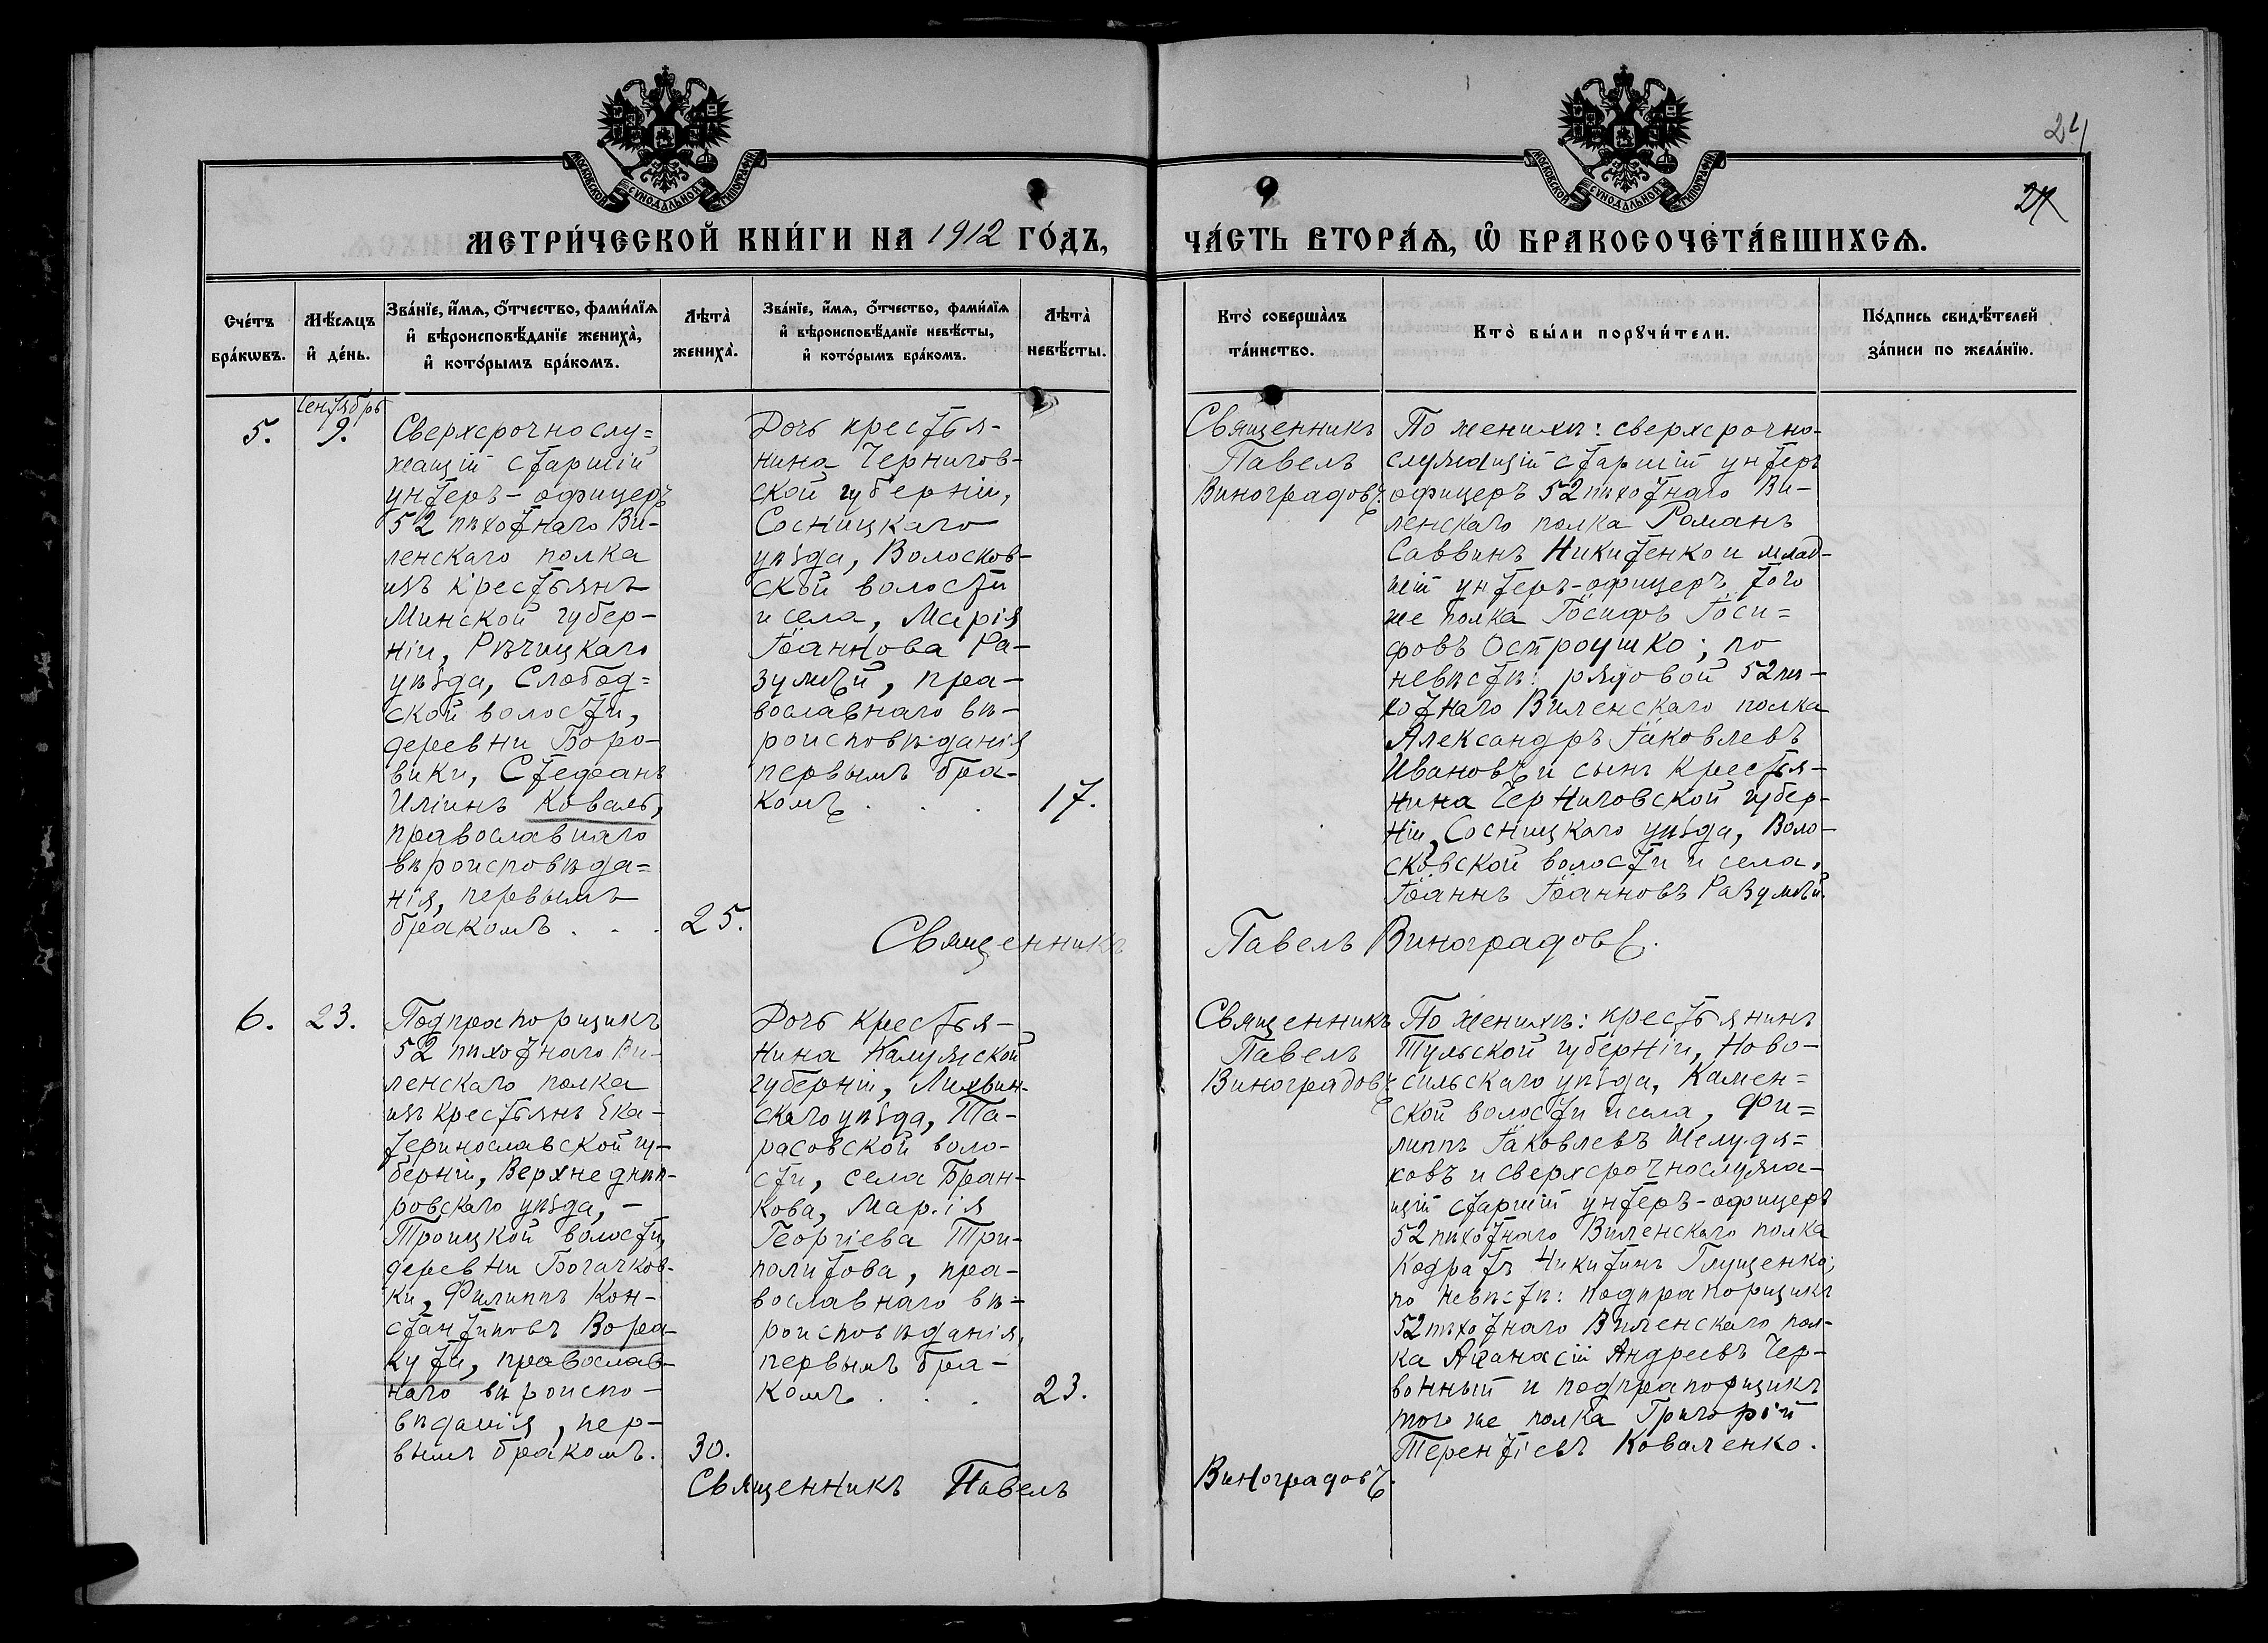 24
27
МОСКОВСКОЙ СѴНОДАЛЬНОЙ ТИПОГРАФІИ
МОСКОВСКОЙ СѴНОДАЛЬНОЙ ТИПОГРАФІИ
МЕТРИ́ЧЕСКОЙ КНИ́ГИ НА 1912 ГО́ДЪ, ЧА́СТЬ ВТОРА́Я, Ѡ҆ БРАКОСОЧЕТА́ВШИХСЯ.
Сче́тъ
бра́кѡвъ.
Мѣ́сяцъ
и҆ де́нь.
Зва́нїе, и҆́мя, ѻ҆́тчество, фами́лїя
и҆ вѣроисповѣ́данїе жениха̀,
и҆ кото́рымъ бра́комъ.
Лѣта̀
жениха̀.
Зва́нїе, и҆́мя, ѻ҆́тчество, фами́лїя
и҆ вѣроисповѣ́данїе невѣ́сты,
и҆ кото́рымъ бра́комъ.
Лѣта̀
невѣ́сты.
Кто̀ соверша́лъ
та́инство.
Кто̀ бы́ли порꙋчи́тели.
По́дпись свидѣ́телей
за́писи по жела́нїю.
5.
Сентябрь
9.
Сверхсрочнослу=
жащій старшій
унтеръ-офицеръ
52 пѣхотнаго Ви-
ленскаго полка
изъ крестьянъ
Минской губер-
ніи, Рѣчицкаго
уѣзда, Слобод=
ской волости,
деревни Боро-
вики, Стефанъ
Иліинъ Коваль,
православнаго
вѣроисповѣда=
нія, первымъ
бракомъ . . .
25.
Дочь крестья-
нина Чернигов-
ской губерніи,
Сосницкаго
уѣзда, Волосков-
ской волости
и села, Марія
Іоаннова Ра-
зумѣй, пра-
вославнаго вѣ-
роисповѣданія
первымъ бра-
комъ . . .
17.
Священникъ
Павелъ
Виноградовъ.
По женихѣ: сверхсрочно-
служащій старшій унтеръ
офицеръ 52 пѣхотнаго Ви-
ленскаго полка Романъ
Саввинъ Никитенко и млад-
шій унтеръ-офицеръ того
же полка Іосифъ Іоси=
фовъ Остроушко; по
невѣстѣ: рядовой 52 пѣ-
хотнаго Виленскаго полка
Александръ Іаковлевъ
Ивановъ и сынъ крестья-
нина Черниговской губер-
ніи, Сосницкаго уѣзда, Воло-
сковской волости и села,
Іоаннъ Іоанновъ Разумѣй.
Священникъ Павелъ Виноградовъ.
6.
23.
Подпрапорщикъ
52 пѣхотнаго Ви-
ленскаго полка
изъ крестьянъ Ека-
теринославской гу-
берніи, Верхнеднѣп-
ровскаго уѣзда, -
Троицкой волости,
деревни Богачков-
ки, Филиппъ Кон-
стантиновъ Вора-
кута, православ-
наго вѣроиспо-
вѣданія, пер-
вымъ бракомъ.
30.
Дочь крестья-
нина Калужской
губерніи, Лихвин-
скаго уѣзда, Та-
расовской воло-
сти, села Бран-
кова, Марія
Георгіева Три-
политова, пра-
вославнаго вѣ-
роисповѣданія,
первымъ бра-
комъ . . .
23.
Священникъ
Павелъ
Виноградовъ
По женихѣ: крестьянинъ
Тульской губерніи, Ново-
сильскаго уѣзда, Камен=
ской волости и села, Фи=
липпъ Іаковлевъ Шелудя=
ковъ и сверхсрочнослужа-
щій старшій унтеръ-офицеръ
52 пѣхотнаго Виленскаго полка
Кодратъ Никитинъ Глущенко;
по невѣстѣ: подпрапорщикъ
52 пѣхотнаго Виленскаго пол-
ка Аѳанасій Андреевъ Чер-
вонный и подпрапорщикъ
того же полка Григорій
Терентіевъ Коваленко.
Священникъ Павелъ Виноградовъ.